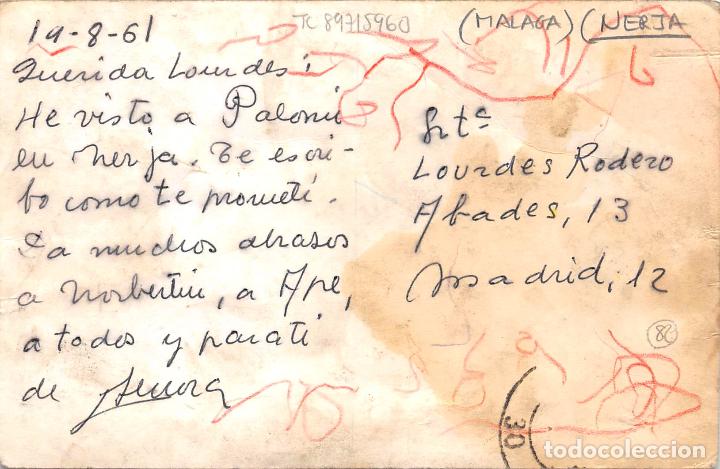 19-8-61
TC 89715960
(MALAGA) (NERJA
Querida Lourdes:
He visto a Palomi
en Nerja. Te escri-
bo como te prometí.
Da muchos abrasos
a Norbertin, a Ape,
a todos y para ti
de
Srtª
Lourdes Rodero
Abades, 13
Madrid, 12
30
todocoleccion.net